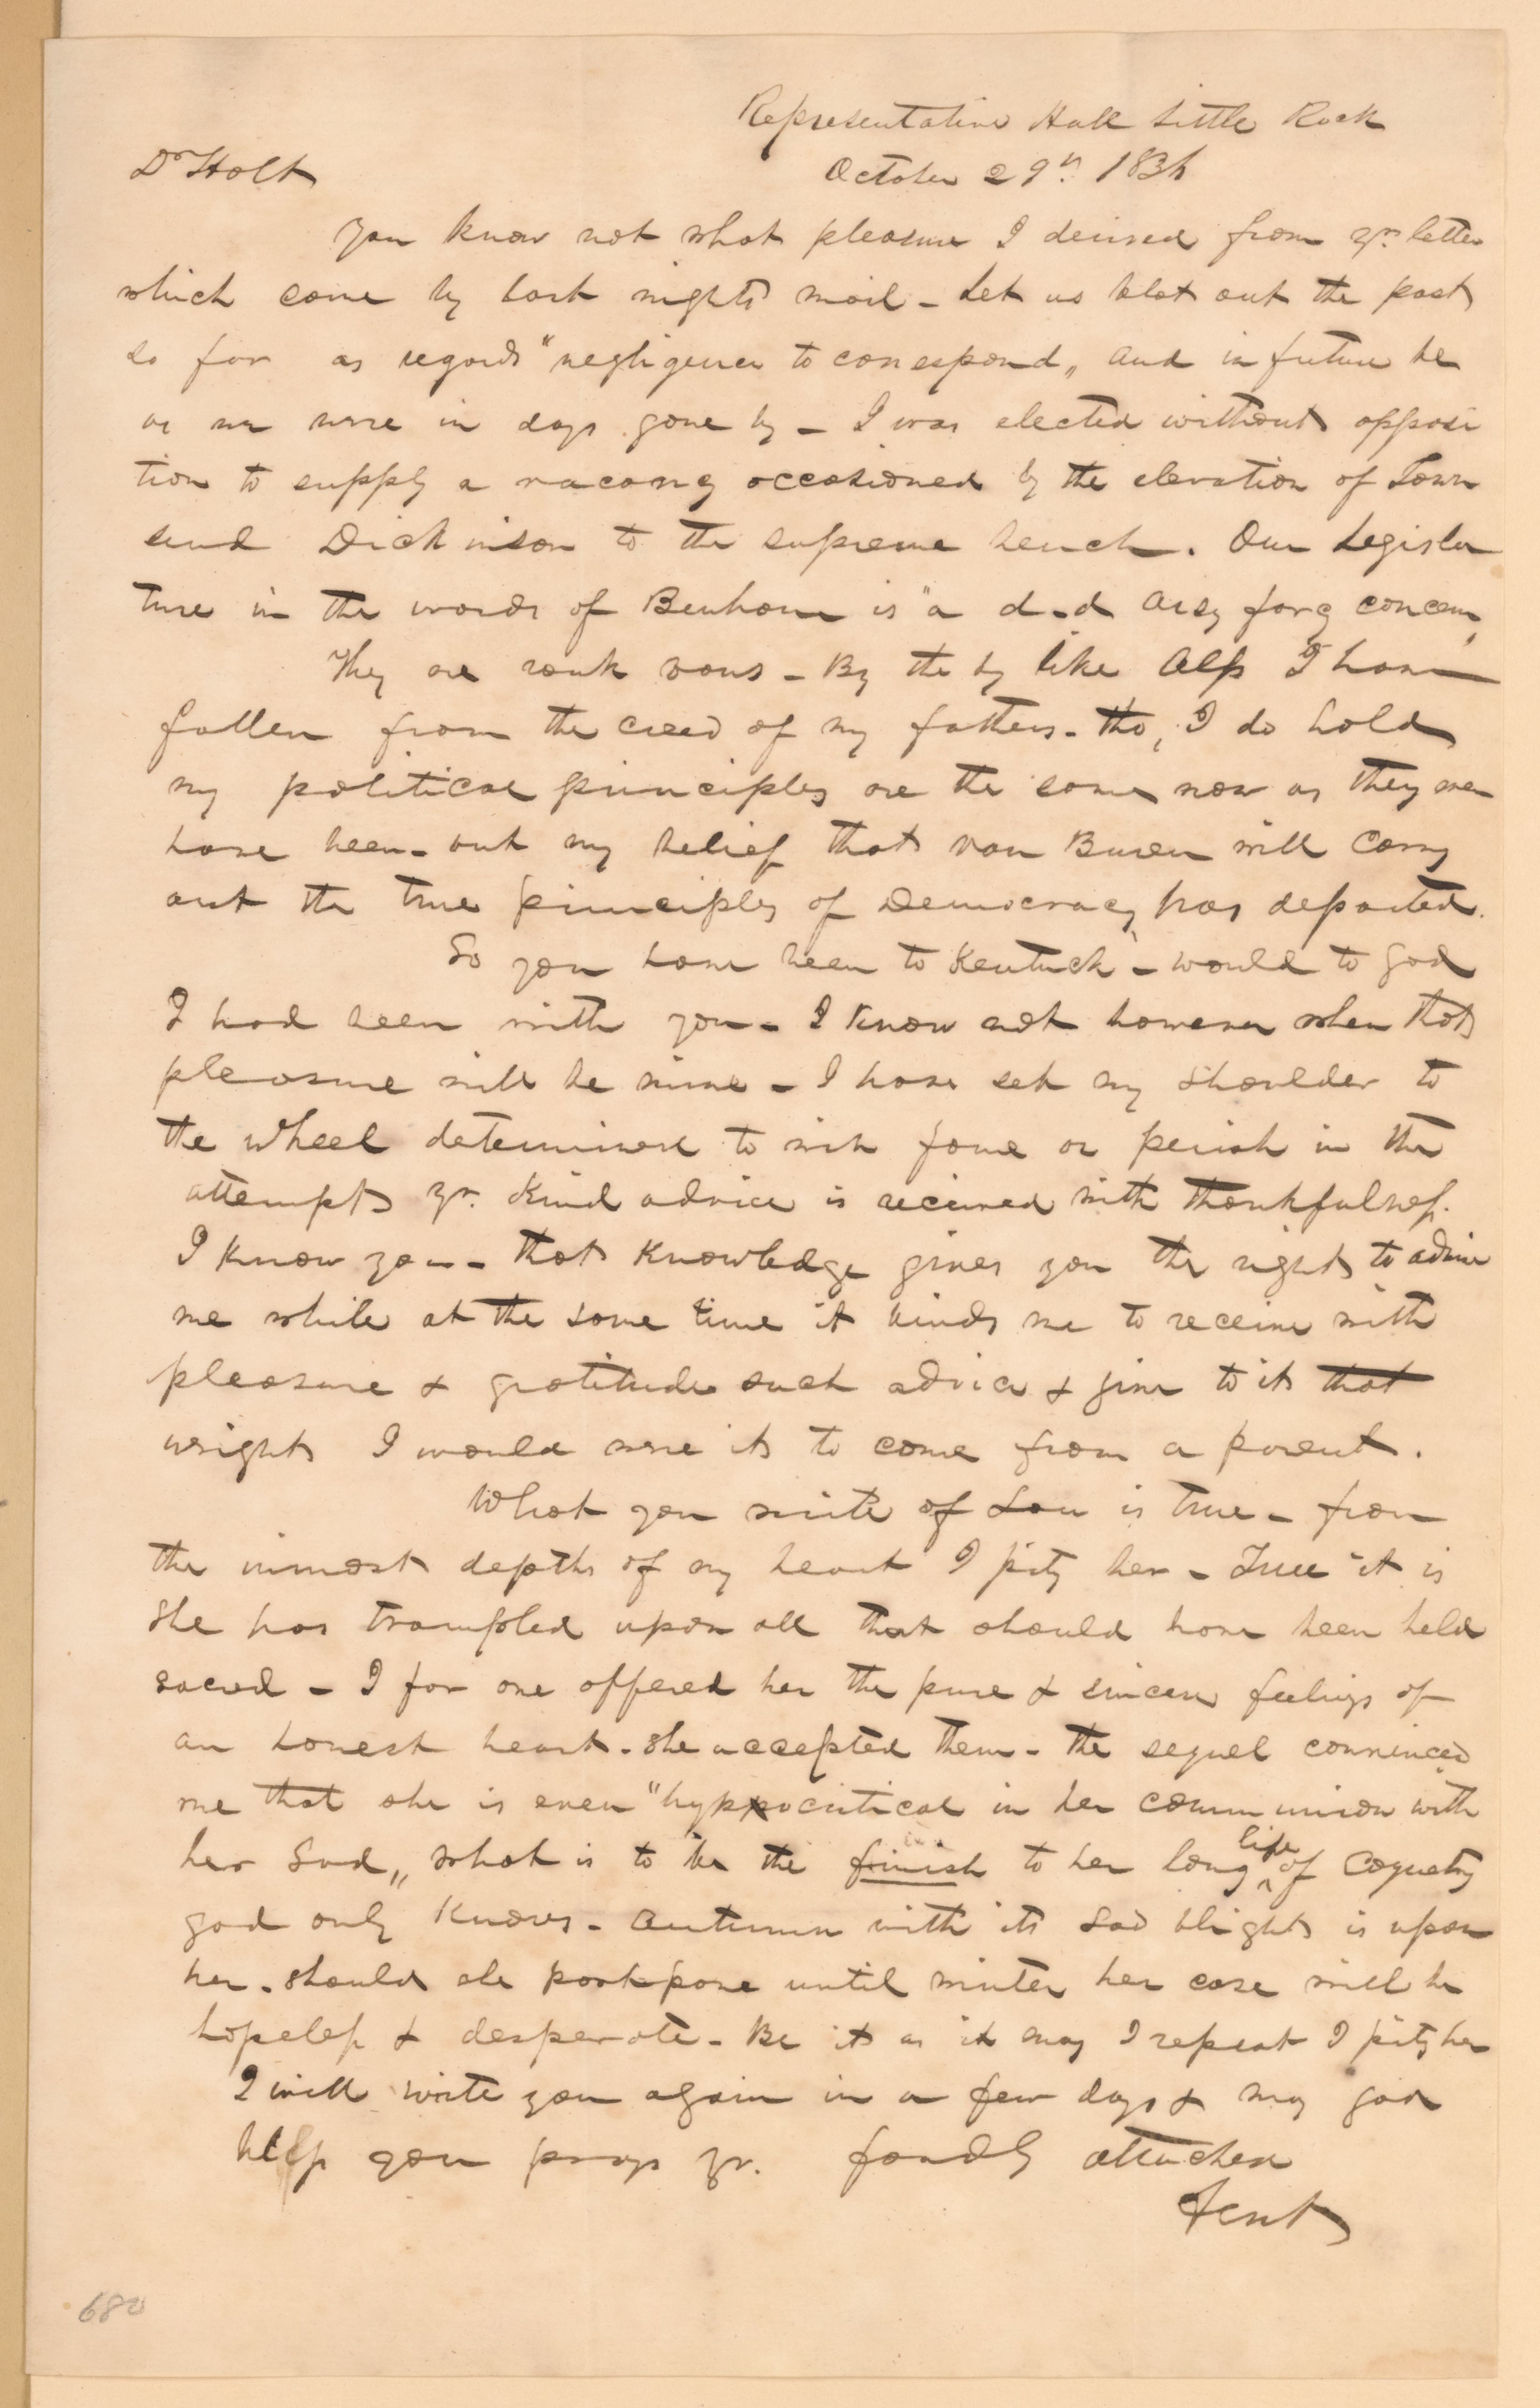 Representative Hall Little Rock
Dr Holt October 29th 1836
You know not what pleasure I derived from yr letter
which came by last nights mail - Let us blot out the past
so far as regards "negligence to correspond" and in future be
as we were in days gone by - I was elected without opposi
tion to supply a vacancy occasioned by the elevation of Town
send Dickinson to the supreme bench. Our Legisla
ture in the words of Benham is "a d-d arsy farcy concern"
They are rank vans - By the by like Alp I have
fallen from the creed of my fathers - tho, I do hold
my political principles are the same now as they ever
have been - but my belief that Van Buren will carry
out the true principles of Democracy has departed.
So you have been to Kentuck - would to god
I had been with you - I know not however when that
pleasure will be mine - I have set my shoulder to
the wheel determined to win fame or perish in the
attempt yr. kind advice is received with thankfulness.
I know you - that knowledge gives you the right to advise
me while at the same time it binds me to receive with
pleasure & gratitude such advice & give to it that
weight I would were it to come from a parent.
What you write of Lou is true - from
the inmost depths of my heart I pity her - True it is
she has trampled upon all that should have been held
sacred - I for one offered her the pure & sincere feelings of
an honest heart - she accepted them - the sequel convinced
me that she is even "hyppocritical in her communion with
her God" what is to be the finish to her long life of coquetry
god only knows - autumn with its sad blights is upon
her - should she postpone until winter her case will be
hopeless & desperate - Be it as it may I repeat I pity her
I will write you again in a few days & may god
help you prays yr. fondly attached
Fent
680